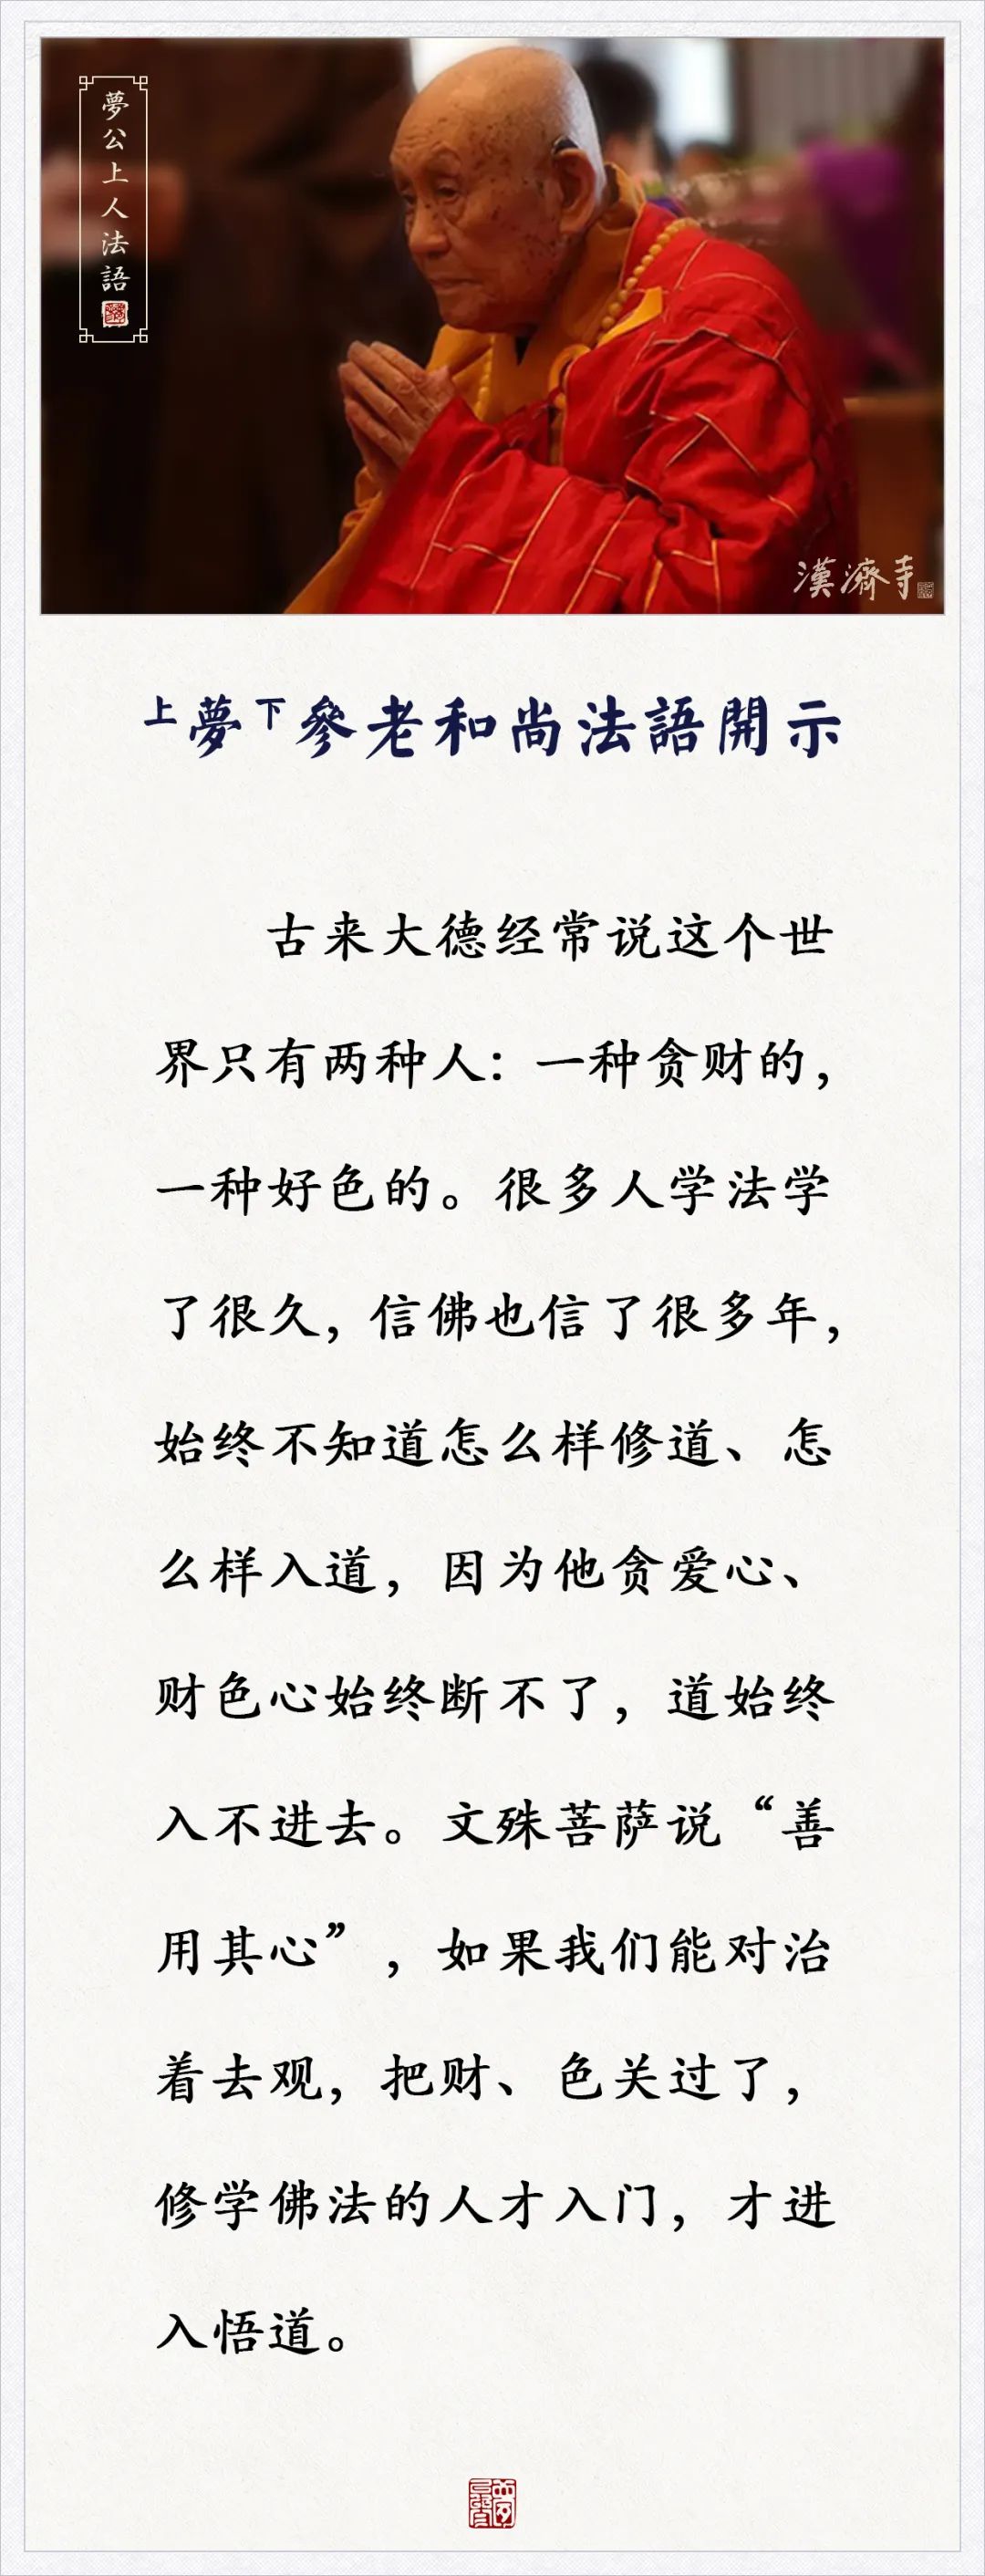 夢公上人法語
漢濟寺
上夢下參老和尚法語開示
古来大德经常说这个世
界只有两种人：一种贪财的，
一种好色的。很多人学法学
了很久，信佛也信了很多年，
始终不知道怎么样修道、怎
么样入道，因为他贪爱心、
财色心始终断不了，道始终
入不进去。文殊菩萨说“善
用其心”，如果我们能对治
着去观，把财、色关过了，
修学佛法的人才入门，才进
入悟道。